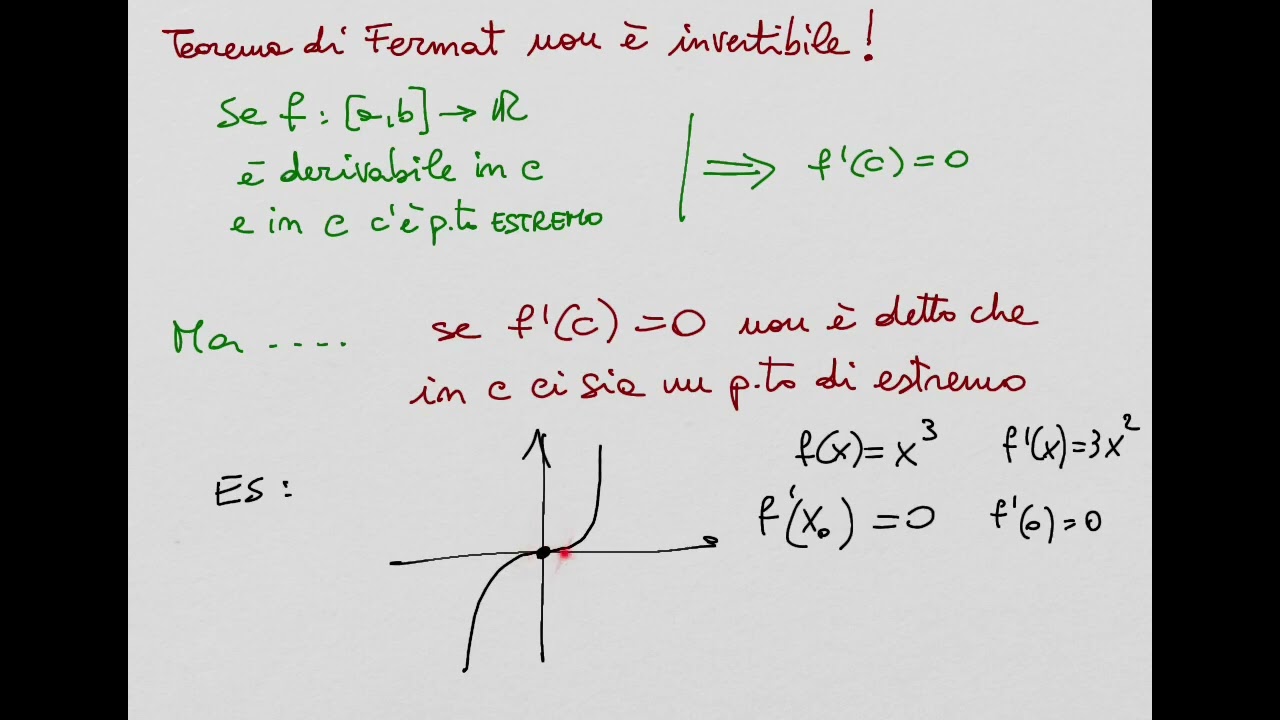 Teorema di Fermat non è invertibile!
Se f : [a,b] → ℝ
è derivabile in c
e in c c'è p.to ESTREMO
⟹ f'(c) = 0
Ma ....
se f'(c) = 0 non è detto che
in c ci sia un p.to di estremo
ES :
f(x) = x³ f'(x) = 3x²
f'(x₀) = 0 f'(0) = 0